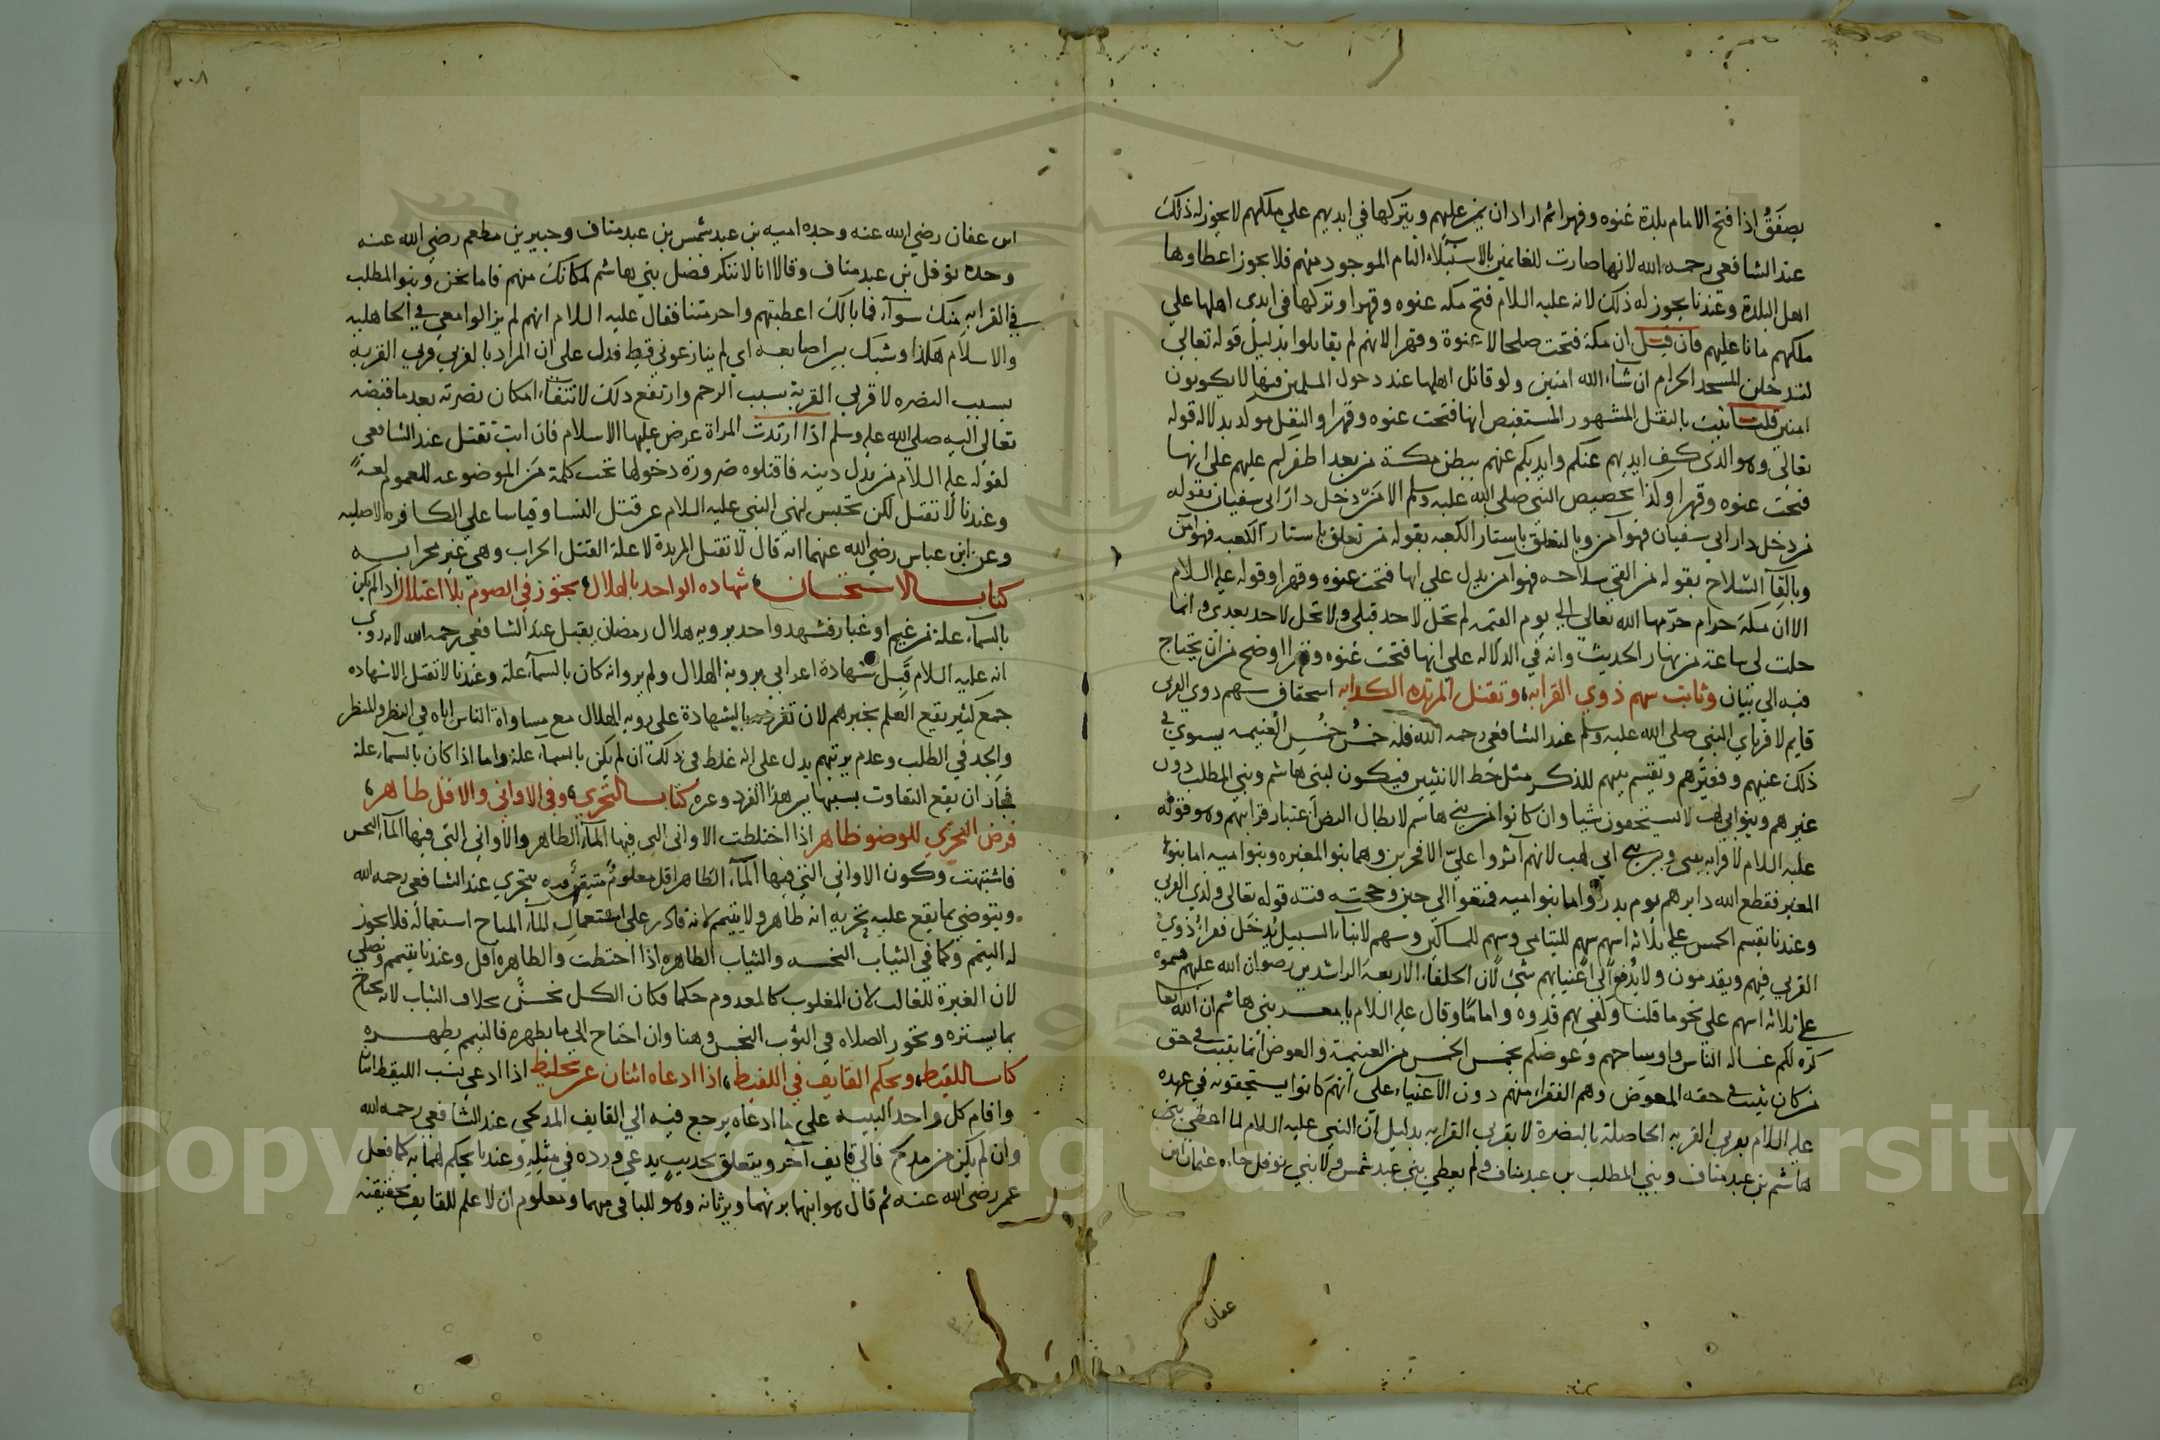 بصفق اذا فتح الامام بلدة عنوه وقهرا ثم اراد ان يمن عليهم ويتركها في ايديهم علي ملكهم لا يجوز له ذلك
عند الشافعي رحمه الله لانها صارت للغانمين بالاستيلاء التام الموجود منهم فلا يجوز اعطاوها
اهل البلدة وعندنا يجوز له ذلك لانه عليه السلام فتح مكه عنوه وقهرا وتركها في ايدي اهلها علي
ملكهم مانا عليهم فان قيل ان مكة فتحت صلحا لا عنوة وقهرا لانهم لم يقاتلوا بدليل قوله تعالي
لتدخلن المسجد الحرام ان شاء الله امنين ولو قاتل اهلها عند دخول المسلمين فيها لا يكونون
امنين قلنا ثبت بالنقل المشهور المستفيض انها فتحت عنوه وقهرا والنقل مويد بدلالة قوله
تعالي وهو الذي كف ايديهم عنكم وايديكم عنهم ببطن مكة من بعد اظفركم عليهم علي انها
فتحت عنوه وقهرا وكذا تخصيص النبي صلي الله عليه وسلم الامن من دخل دار ابي سفيان بقوله
من دخل دار ابي سفيان فهو آمن وبالتعلق باستار الكعبه بقوله من تعلق باستار الكعبه فهو امن
وبالقآ السلاح بقوله من القي سلاحه فهو امن يدل علي انها فتحت عنوه وقهرا وقوله عليه السلام
الا ان مكة حرام حرمها الله تعالي الي يوم القيمه لم تحل لاحد قبلي ولا تحل لاحد بعدي وانما
حلت لي ساعة من نهار الحديث وانه في الدلاله علي انها فتحت عنوه وقهرا اوضح من ان يحتاج
فيه الي بيان وثابت سهم ذوي القرابه، وتقتل المرتده الكذابه استحقاق سهم ذوي القربي
قايم لاقرباي النبي صلي الله عليه وسلم عند الشافعي رحمه الله فله خمس خمس الغنيمه يسوي في
ذلك غنيهم وفقيرهم ويقسم بينهم للذكر مثل حظ الانثيين فيكون لبني هاشم وبني المطلب دون
غيرهم وبنوا ابي لهب لا يستحقون شيا وان كانوا من بني هاشم لابطال النص اعتبار قرابتهم وهو قوله
عليه السلام لا قرابه بيني وبين بني ابي لهب لانهم آثروا علي الافجرين وهما بنو المغيره وبنوا اميه اما بنوا
المغير فقطع الله دابرهم يوم بدر واما بنوا اميه فمتعوا الي حين وحجته فيه قوله تعالي ولذي القربي
وعندنا يقسم الخمس علي ثلاثه اسهم سهم لليتامي وسهم للمساكين وسهم لابناء السبيل يدخل فقراء ذوي
القربي فيهم ويقدمون ولا يدفع الي اغنيايهم شي لان الخلفاء الاربعة الراشدين رضوان الله عليهم قسموه
علي ثلاثه اسهم علي نحو ما قلنا وكفي بهم قدوه واماما وقال عليه السلام يا معشر بني هاشم ان الله تعا
كره لكم غساله الناس واوساخهم وعوضكم بخمس الخمس من الغنيمة والعوض انما يثبت في حق
من كان ثبت في حقه المعوض وهم الفقراء منهم دون الاغنياء علي انهم كانوا يستحقونه في عهده
عليه السلام بقربي القربه الحاصلة بالنصرة لا بقربي القرابه بدليل ان النبي عليه السلام لما اعطي بني
هاشم بن عبد مناف وبني المطلب بن عبد مناف ولم يعطي بني عبد شمس ولا بني نوفل جاءه عثمان بن
عفان
٣٠٨
ابن عفان رضي الله عنه وجده اميه بن عبد شمس بن عبد مناف وجبير بن مطعم رضي الله عنه
وجده نوفل بن عبد مناف وقالا انا لا ننكر فضل بني هاشم لمكانك منهم فاما نحن وبنو المطلب
في القرابه منك سوآء فما بالك اعطيتهم واحرمتنا فقال عليه السلام انهم لم يزالوا معي في الجاهليه
والاسلام هكذا وشبك بين اصابعه اي لم ينازعوني قط فدل علي ان المراد بالقربي قربي القربه
بسبب النصره لا قربي القربة بسبب الرحم وارتفع ذلك لانتفاء امكان نصرته بعد ما قبضه
تعالي اليه صلي الله عليه وسلم اذا ارتدت المراة عرض عليها الاسلام فان ابت تقتل عند الشافعي
لقوله عليه السلام من بدل دينه فاقتلوه ضرورة دخولها تحت كلمة من الموضوعه للعموم لغة
وعندنا لا تقتل لكن تحبس لنهي النبي عليه السلام عن قتل النسا وقياسا علي الكافره الاصليه
وعن ابن عباس رضي الله عنهما انه قال لا تقتل المرتدة لان علة القتل الحراب وهي غير محرابيه
كتاب الاستحسان، شهاده الواحد بالهلال، يجوز في الصوم بلا اعتلال اذا لم يكن
بالسماء علة من غيم او غبار فشهد واحد برويه هلال رمضان يقبل عند الشافعي رحمه الله لانه روي
انه عليه السلام قبل شهادة اعرابي بروية الهلال ولم يرو انه كان بالسماء علة وعندنا لا تقبل الا شهاده
جمع كثير يقع العلم بخبرهم لان تفرد بالشهادة علي رويه الهلال مع مساواة الناس اياه في النظر والمنظر
والجد في الطلب وعدم رويتهم يدل علي انه غلط في ذلك ان لم يكن بالسماء علة واما اذا كان بالسماء علة
فجاز ان يقع التفاوت بسببها بين هذا الفرد وغيره كتاب التحري، وفي الاواني والاقل طاهر،
فرض التحري للوضو ظاهر اذا اختلطت الاواني التي فيها المآء الطاهر والاواني التي فيها المآء النجس
فاشتبهت وكون الاواني التي فيها المآء الطاهر اقل معلوم متيقن به يتحري عند الشافعي رحمه الله
ويتوضي بما يقع عليه تحريه انه طاهر ولا يتيمم لانه قادر علي استعمال المآء المباح استعماله فلا يجوز
له التيمم وكما في الثياب النجسه والثياب الطاهره اذا اختلطت والطاهره اقل وعندنا يتيمم ويصلي
لان العبرة للغالب لان المغلوب كالمعدوم حكما فكان الكل نجس بخلاف الثياب لانه يحتاج
بما يستره وتجوز الصلاه في الثوب النجس وهنا وان احتاج الي ما يطهره فالتيمم يطهره
كتاب اللقيط، ويحكم القايف في اللقيط، اذا ادعاه اثنان عن تخليط اذا ادعي نسب اللقيط اثنان
واقام كل واحد البينه علي ما ادعاه يرجع فيه الي القايف المدلجي عند الشافعي رحمه الله
وان لم يكن من مدلج فالي قايف آخر ويتعلق بحديث يدعي وروده في مثله وعندنا يحكم لهما به كما فعل
عمر رضي الله عنه ثم قال هو ابنهما يرثهما ويرثانه وهو للباقي منهما ومعلوم ان لا علم للقايف بحقيقته
Copyright © King Saud University